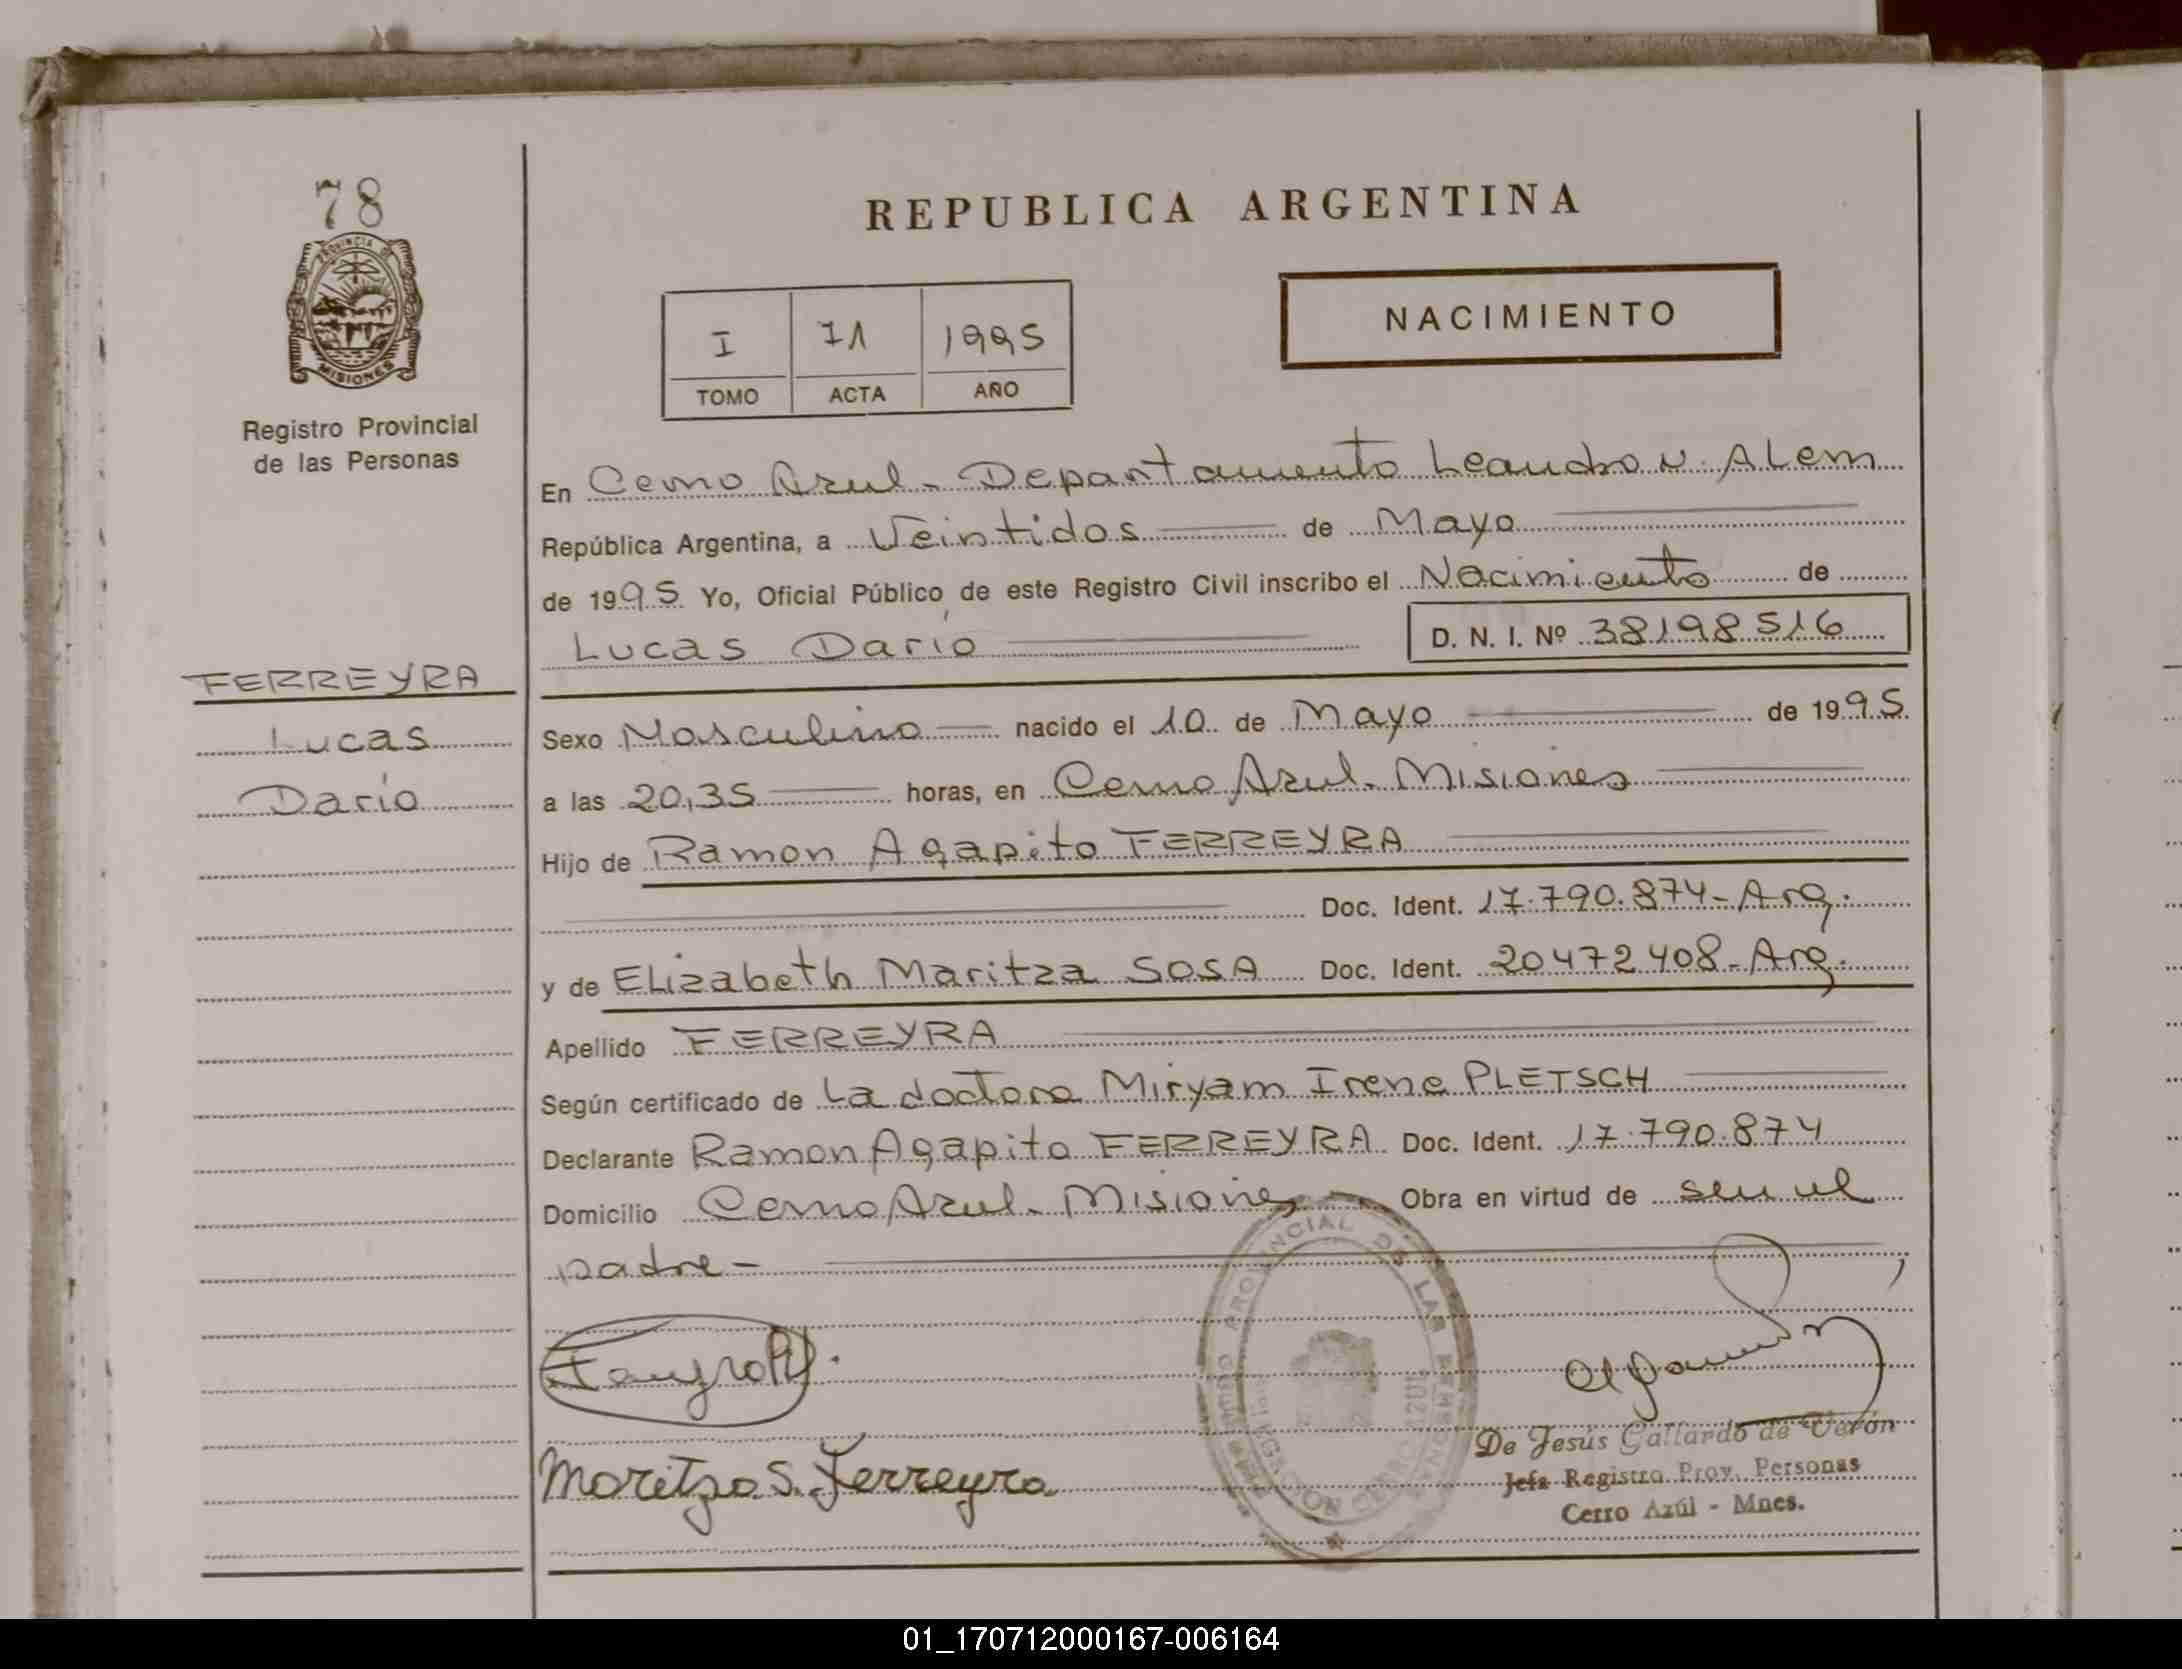 78
PROVINCIA DE
MISIONES
Registro Provincial
de las Personas
REPUBLICA ARGENTINA
NACIMIENTO
I 71 1995
TOMO ACTA AÑO
En Cerro Azul - Departamento Leandro N. Alem
República Argentina, a Veintidos de Mayo
de 1995 Yo, Oficial Público de este Registro Civil inscribo el Nacimiento de
Lucas Darío D. N. I. Nº 38198516
FERREYRA
Lucas
Darío
Sexo Masculino nacido el 10 de Mayo de 1995
a las 20,35 horas, en Cerro Azul - Misiones
Hijo de Ramon Agapito FERREYRA
Doc. Ident. 17.790.874 - Arg.
y de Elizabeth Maritza SOSA Doc. Ident. 20472408 - Arg.
Apellido FERREYRA
Según certificado de La doctora Miryam Irene PLETSCH
Declarante Ramon Agapito FERREYRA Doc. Ident. 17.790.874
Domicilio Cerro Azul - Misiones Obra en virtud de ser el
padre -
PROVINCIAL DE LAS PERSONAS
Maritza S. Ferreyra
De Jesús Gallardo de Verón
Jefa Registro Prov. Personas
Cerro Azúl - Mnes.
01_170712000167-006164